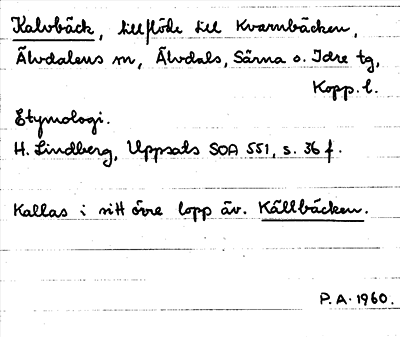 Kalvbäck, tillflöde till Kvarnbäcken,
Älvdalens sn, Älvdals, Särna o. Idre tg,
Kopp. l.
Etymologi.
H. Lindberg, Uppsats SOA 551, s. 36 f.
Kallas i sitt övre lopp äv. Källbäcken.
P.A. 1960.